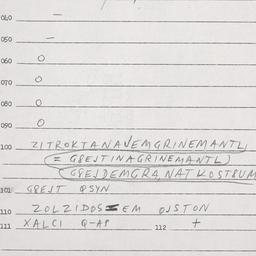 040 –
050 –
060 O
070 O
080 O
090 O
100 ZITROKTANAVEMGRINEMANTL
= GBEJTINAGRINEMANTL)
GBEJDEMGRA, NAT KOSTRUM
101 GBEJT QSYN
110 ZOLZIDOS EM OJSTON
111 XALCI Q-AP 112 +